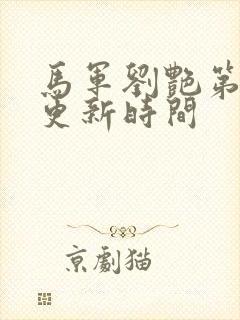 馬軍劉艷第
更新時間
京劇猫